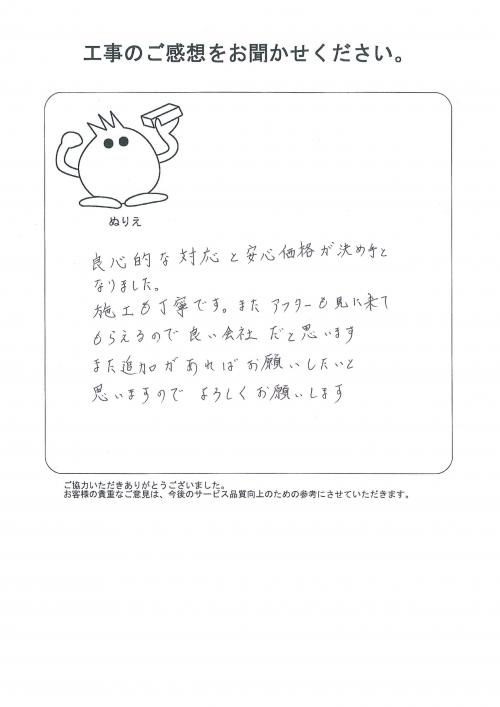 工事のご感想をお聞かせください。
ぬりえ
良心的な対応と安心価格が決め手と
なりました。
施工も丁寧です。また アフターも見に来て
もらえるので良い会社 だと思います
また追加があればお願いしたいと
思いますので よろしくお願いします
ご協力いただきありがとうございました。
お客様の貴重なご意見は、今後のサービス品質向上のための参考にさせていただきます。